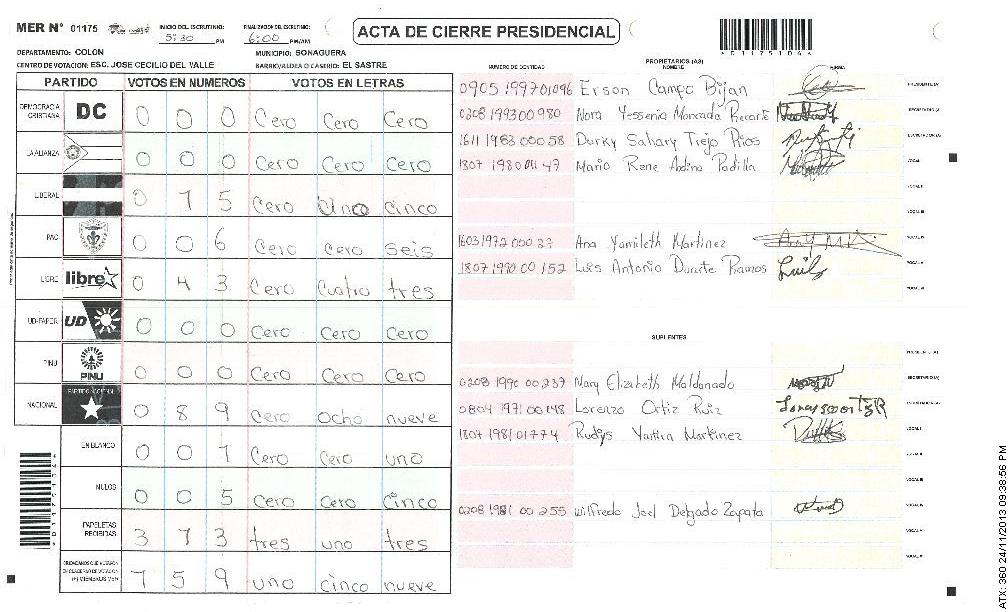 MER Nº 01175
INICIO DEL ESCRUTINIO: 5:30 PM
FINALIZACION DEL ESCRUTINIO: 6:00 PM/AM
ACTA DE CIERRE PRESIDENCIAL
*D1175106*
DEPARTAMENTO: COLON
MUNICIPIO: SONAGUERA
CENTRO DE VOTACION: ESC. JOSE CECILIO DEL VALLE
BARRIO/ALDEA O CASERIO: EL SASTRE
PARTIDO VOTOS EN NUMEROS VOTOS EN LETRAS
DEMOCRACIA CRISTIANA DC 0 0 0 Cero Cero Cero
LA ALIANZA 0 0 0 Cero Cero Cero
LIBERAL 0 1 5 Cero Uno cinco
PAC 0 0 6 Cero Cero seis
LIBRE libre 0 4 3 Cero Cuatro tres
UD-FAPER UD 0 0 0 Cero Cero Cero
PINU PINU 0 0 0 Cero Cero Cero
NACIONAL PARTIDO NACIONAL 0 8 9 Cero Ocho nueve
EN BLANCO 0 0 1 Cero Cero uno
NULOS 0 0 5 Cero Cero Cinco
PAPELETAS RECIBIDAS 3 1 3 tres uno tres
1 5 9 uno cinco nueve
PROPIETARIOS (AS)
NUMERO DE IDENTIDAD NOMBRE FIRMA
0905 1997 01096 Erson Campo Bijan PRESIDENTE (A)
0208 1993 00980 Nora Yessenia Moncada Recarte SECRETARIO (A)
1611 1983 00058 Durky Sahary Trejo Rios ESCRUTADOR (A)
1807 1980 Mario Rene Padilla VOCAL I
VOCAL II
VOCAL III
1603 1972 000 27 Ana Yamileth Martinez VOCAL IV
1807 1990 00 152 Luis Antonio Duarte Ramos Luis VOCAL V
VOCAL VI
SUPLENTES
PRESIDENTE (A)
0208 1990 00 237 Mary Elizabeth Maldonado SECRETARIO (A)
0804 1971 00148 Lorenzo Ortiz Ruiz ESCRUTADOR (A)
1807 1981 01774 Rudys Martinez VOCAL I
VOCAL II
VOCAL III
0208 1981 00 255 Wilfredo Joel Delgado Zapata VOCAL IV
VOCAL V
VOCAL VI
ATX: 360 24/11/2013 09:38:56 PM